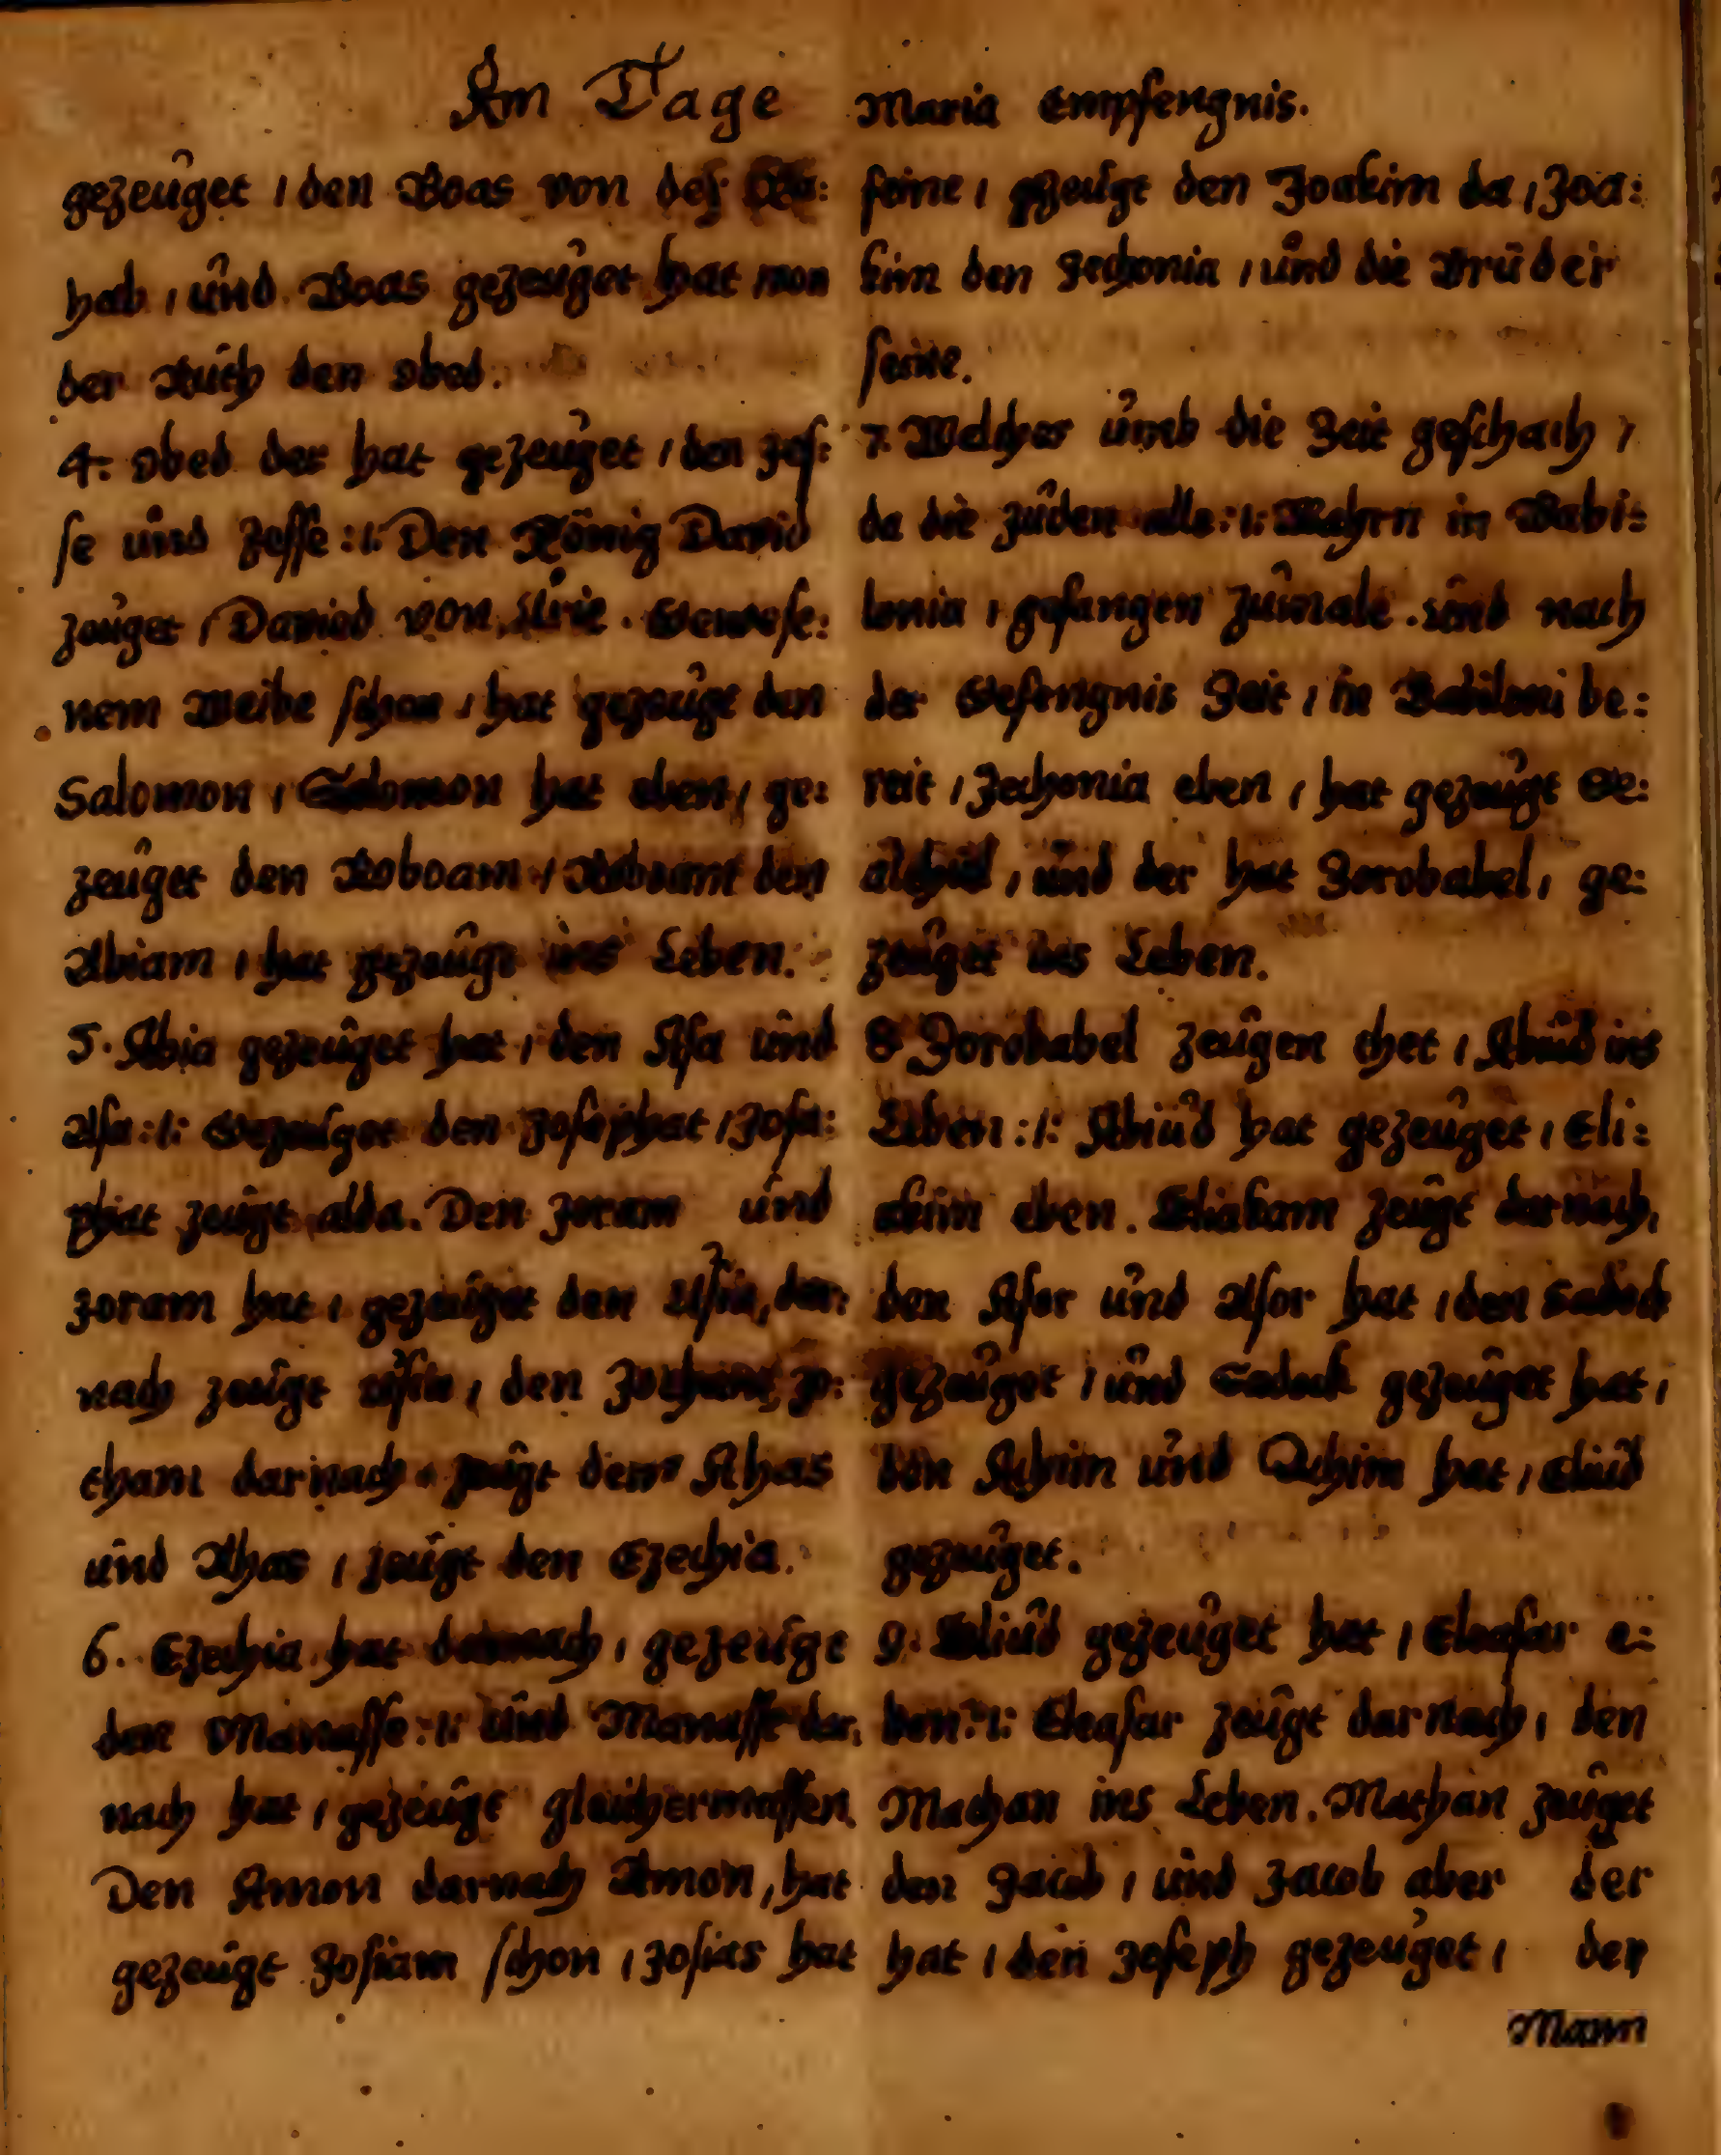 Am Tage Maria Empfengnis.
gezeuget / den Boas von des Ra:
hab / und Boas gezeuget hat von
der Ruth den Obed.
4. Obed der hat gezeuget / den Jes:
se und Jesse :/: Den König David
zeuget / David von Urie . Gewese:
nem Weibe schon / hat gezeugt den
Salomon / Salomon hat eben / ge:
zeuget den Roboam / Roboam den
Abiam / hat gezeugt ins Leben.
5. Abia gezeuget hat / den Asa und
Asa :/: Gezeuget den Josaphat / Josa:
phat zeugt alda. Den Joram und
Joram hat / gezeuget den Usia, dar:
nach zeugt Usia / den Jotham, Jo:
tham darnach zeugt den Ahas
und Ahas / zeugt den Ezechia.
6. Ezechia hat darnach / gezeugt
den Manasse :/: und Manasse dar:
nach hat / gezeugt gleichermassen.
Den Amon darnach Amon, hat
gezeugt Josiam schon / Josias hat
seine / gezeugt den Joakim da / Joa:
kim den Jechonia / und die Brüder
seine.
7. Welches umb die Zeit geschach /
da die Juden alle :/: Wahrn in Babi:
lonia / gefangen zumale. und nach
der Gefengnis Zeit / in Babiloni be:
reit / Jechonia eben / hat gezeugt Se:
althiel, und der hat Zorobabel, ge:
zeuget ins Leben.
8 Zorobabel zeugen thet / Abiud ins
Leben :/: Abiud hat gezeuget / Eli:
akim eben. Eliakam zeugt darnach,
den Asor und Asor hat / den Sadock
gezeuget / und Sadock gezeuget hat /
den Achim und Achim hat / Eliud
gezeuget.
9. Eliud gezeuget hat / Eleasar e:
ben :/: Eleasar zeugt darnach / den
Mathan ins Leben. Mathan zeuget
den Jacob / und Jacob aber der
hat / den Joseph gezeuget / den
Mann